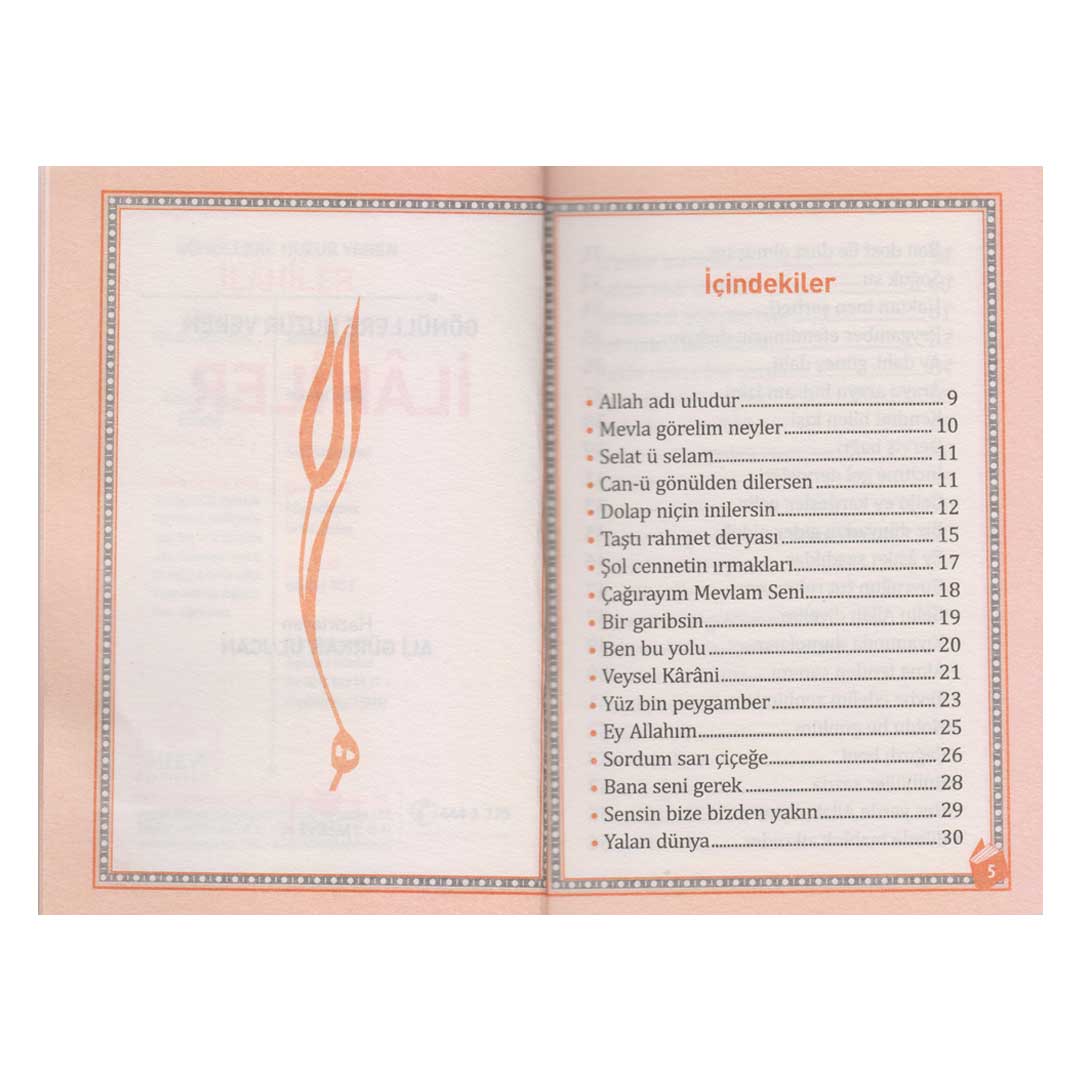 İçindekiler
• Allah adı uludur.......................................... 9
• Mevla görelim neyler.............................. 10
• Selat ü selam............................................ 11
• Can-ü gönülden dilersen ....................... 11
• Dolap niçin inilersin............................... 12
• Taştı rahmet deryası .............................. 15
• Şol cennetin ırmakları............................ 17
• Çağırayım Mevlam Seni.......................... 18
• Bir garibsin............................................... 19
• Ben bu yolu .............................................. 20
• Veysel Kârâni........................................... 21
• Yüz bin peygamber................................. 23
• Ey Allahım................................................ 25
• Sordum sarı çiçeğe.................................. 26
• Bana seni gerek ....................................... 28
• Sensin bize bizden yakın........................ 29
• Yalan dünya.............................................. 30
5